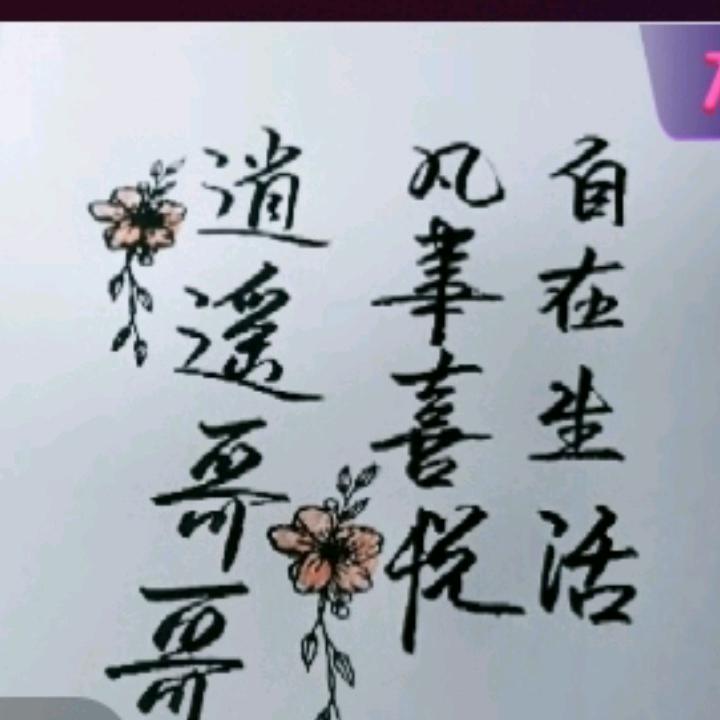 自在生活
凡事喜悦
逍遥哥哥